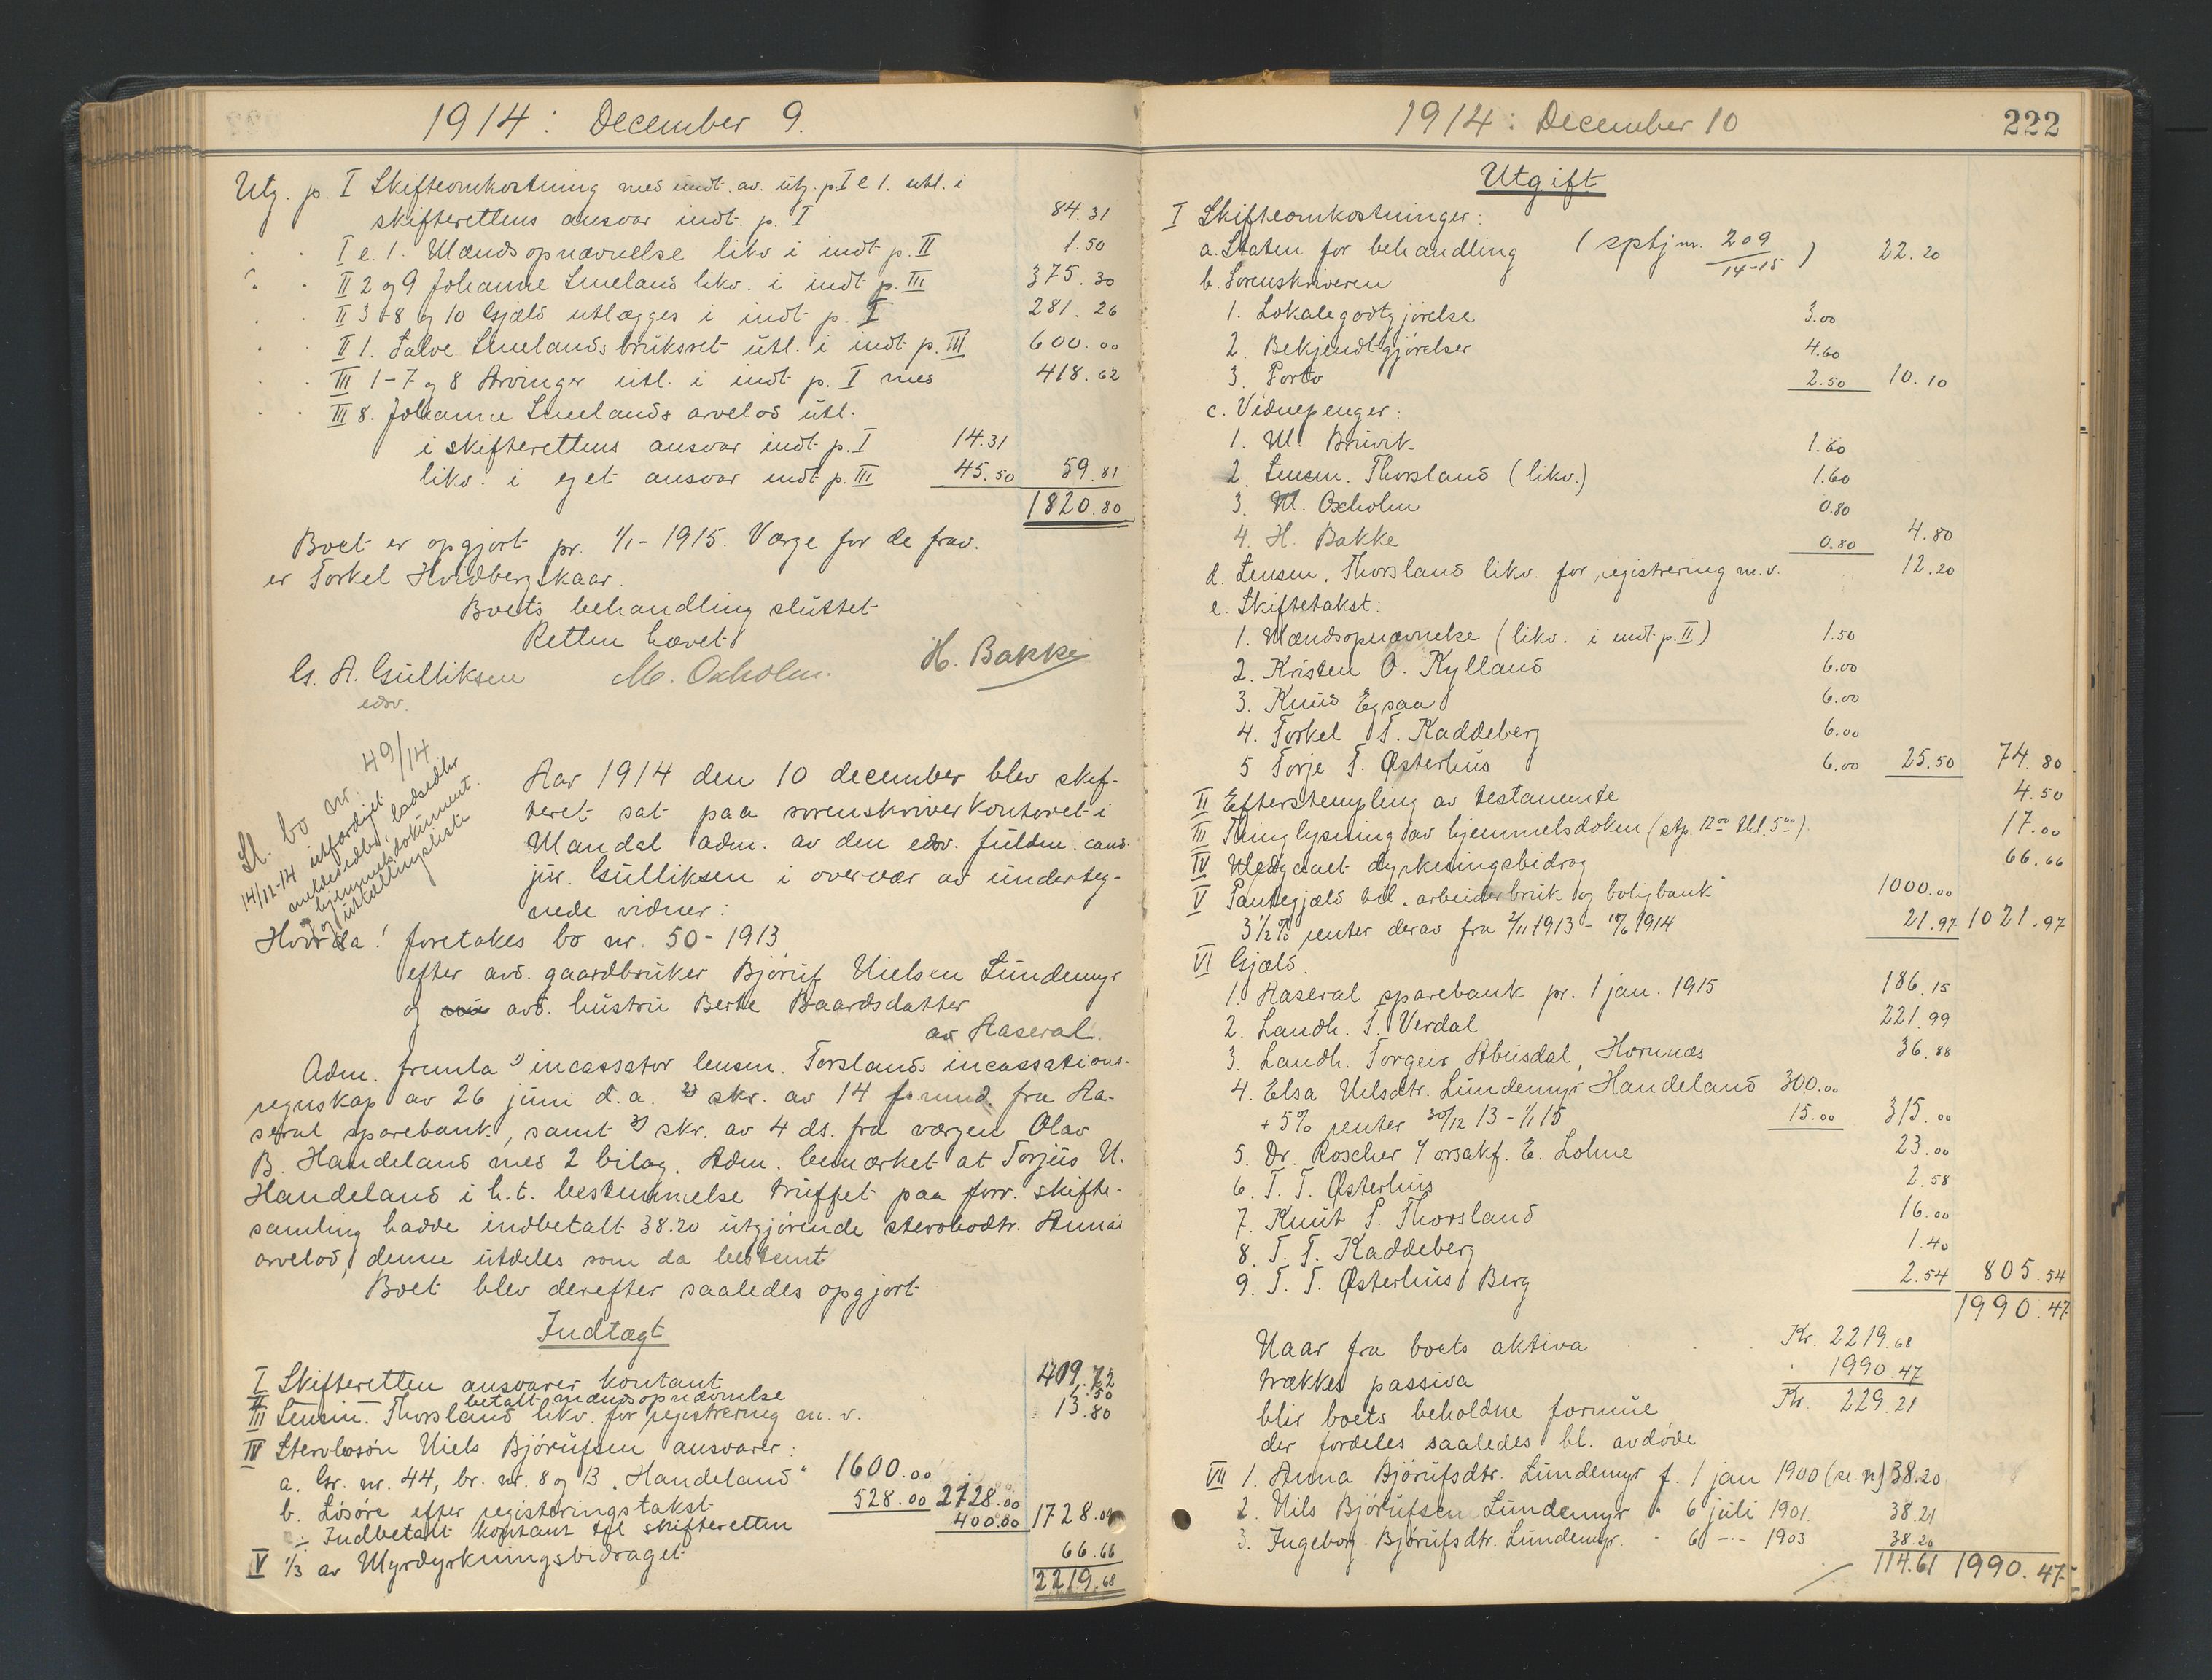 1914: December 9.
Utg. p. I Skifteomkostning med undt. av. utg. p. I e 1. utl. i
skifterettens ansvar indt. p. I 84.31
I e. 1. Mændsopnævnelse likv i indt p. II 1.50
II 2 og 9 Johanne Smelands likv. i indt p. III 375.30
II 3-8 og 10 Gjæld utlægges i indt p. I 281.26
II 1. Salve Smelands bruksret utl. i indt p. III 600.00
III 1-7 og 8 Arvinger utl. i indt p. I med 418.62
III 8. Johanne Smelands arvelod utl.
i skifterettens ansvar indt p. I 14.31
likv. i eget ansvar indt p. III 45.50 59.81
1820.80
Boet er opgjort pr. 1/1-1915. Værge for de frav.
er Torkel Hvidbergskaar.
Boets behandling sluttet
Retten hævet
G. A. Gulliksen M. Oxholm. H. Bakke
edsv.
Sl. bo nr. 49/14
14/12-14 utfærdiget
meldesedler, ladsedler
hjemmelsdokument
og utstillingsliste
Aar 1914 den 10 december blev skif-
teret sat paa sorenskriverkontoret i
Mandal adm. av den edsv. fuldm. cand.
jur. Gulliksen i overvær av underteg-
nede vidner:
Hvorda! foretakes bo nr. 50-1913
efter avd. gaardbruker Bjøruf Nielsen Lundemyr
og avd. hustru Berte Baardsdatter
av Aaseral.
Adm. fremla 1) incassator lensm. Torslands incassations-
regnskap av 26 juni d.a. 2) skr. av 14 f. mnd. fra Aa-
seral sparebank, samt 3) skr. av 4 ds. fra værgen Olav
B. Handeland med 2 bilag. Adm. bemærket at Torjus N.
Handeland i h.t. bestemmelse truffet paa forr. skifte-
samling hadde indbetalt 38.20 utgjørende stervbodtr. Annas
arvelod, denne utdeles som da bestemt
Boet blev derefter saaledes opgjort
Indtægt
I Skifteretten ansvarer kontant 409.72
II betalt mændsopnævnelse 1.50
III Lensm. Thorsland likv. for registrering m. v. 13.80
IV Stervbosøn Niels Bjørufsen ansvarer:
a. Gr. nr. 44, br. nr. 8 og 13 „Handeland“ 1600.00
b. Løsøre efter registreringstakst 528.00 2128.00
÷ Indbetalt kontant til skifteretten 400.00 1728.00
V 1/3 av Myrdyrkningsbidraget 66.66
2219.68
1914: December 10 222
Utgift
I Skifteomkostninger:
a. Staten for behandling (sptj nr. 209/14-15) 22.20
b. Sorenskriveren
1. Lokalegodtgjørelse 3.00
2. Bekjendtgjørelser 4.60
3. Porto 2.50 10.10
c. Vidnepenger:
1. M. Bruvik 1.60
2. Lensm. Thorsland (likv.) 1.60
3. M. Oxholm 0.80
4. H. Bakke 0.80 4.80
d. Lensm. Thorsland likv. for registrering m.v. 12.20
e. Skiftetakst:
1. Mændsopnævnelse (likv. i indt p. II) 1.50
2. Kristen O. Kylland 6.00
3. Knud Egsaa 6.00
4. Torkel T. Kaddeberg 6.00
5 Torje T. Østerhus 6.00 25.50 74.80
II Efterstempling av testamente 4.50
III Thinglysning av hjemmelsdoken (stp. 12.00 thl. 5.00) 17.00
IV Medgaaet dyrkningsbidrag 66.66
V Pantegjæld til „arbeiderbruk og boligbank“ 1000.00
3 1/2 % renter derav fra 2/11 1913 - 17/6 1914 21.97 1021.97
VI Gjæld.
1. Aaseral sparebank pr. 1 jan. 1915 186.15
2. Landh. T. Verdal 221.99
3. Landh. Torgeir Abusdal, Hornnæs 36.88
4. Elsa Nilsdtr. Lundemyr Handeland 300.00
+ 5% renter 30/12 13 - 1/1 15 15.00 315.00
5. Dr. Roscher v/ orsakf. E. Lohne 23.00
6. T. T. Østerhus 2.58
7. Knut P. Thorsland 16.00
8. T. T. Kaddeberg 1.40
9. T. T. Østerhus Berg 2.54 805.54
1990.47
Naar fra boets aktiva Kr. 2219.68
trækkes passiva 1990.47
blir boets beholdne formue Kr. 229.21
der fordeles saaledes bl. avdøde
VII 1. Anna Bjørufsdtr. Lundemyr f. 1 jan 1900 (se n) 38.20
2. Nils Bjørufsen Lundemyr " 6 juli 1901. 38.21
3. Ingeborg Bjørufsdtr. Lundemyr. - 6 -- 1903 38.20
114.61 1990.47